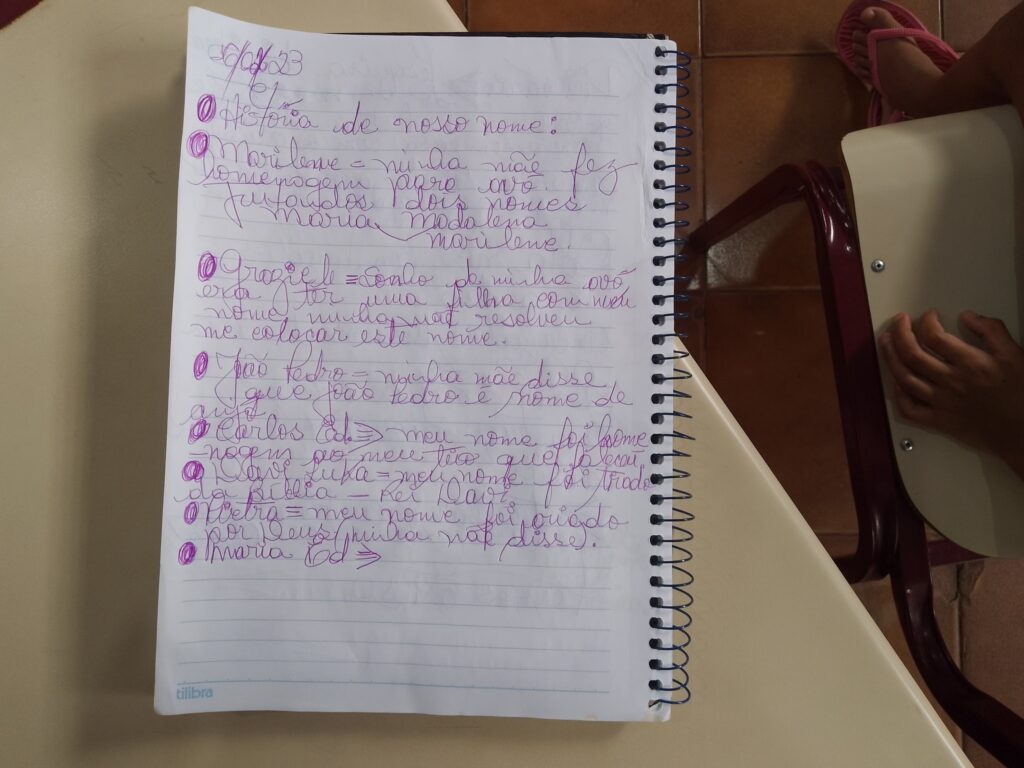 História de nosso nome:
Marilene = minha mãe fez
homenagem para avó.
juntandos dois nomes
Maria Madalena
marilene.
Graziele = Sonho de minha avó
era ter uma filha com meu
nome, minha mãe resolveu
me colocar este nome.
João Pedro = minha mãe disse
que João Pedro é nome de
Carlos Ed => meu nome foi home
-nagem ao meu tio que
Davi Luka = meu nome foi tirado
da Biblia - Rei Davi.
Pietra = meu nome foi criado
por Deus (minha mãe disse).
Maria Ed =>
tilibra